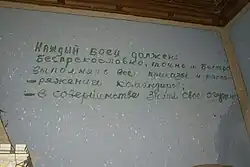 Каждый боец должен:
беспрекословно, точно и быстро
выполнять все приказы и распо-
-ряжения командира;
- в совершенстве знать свое оружие